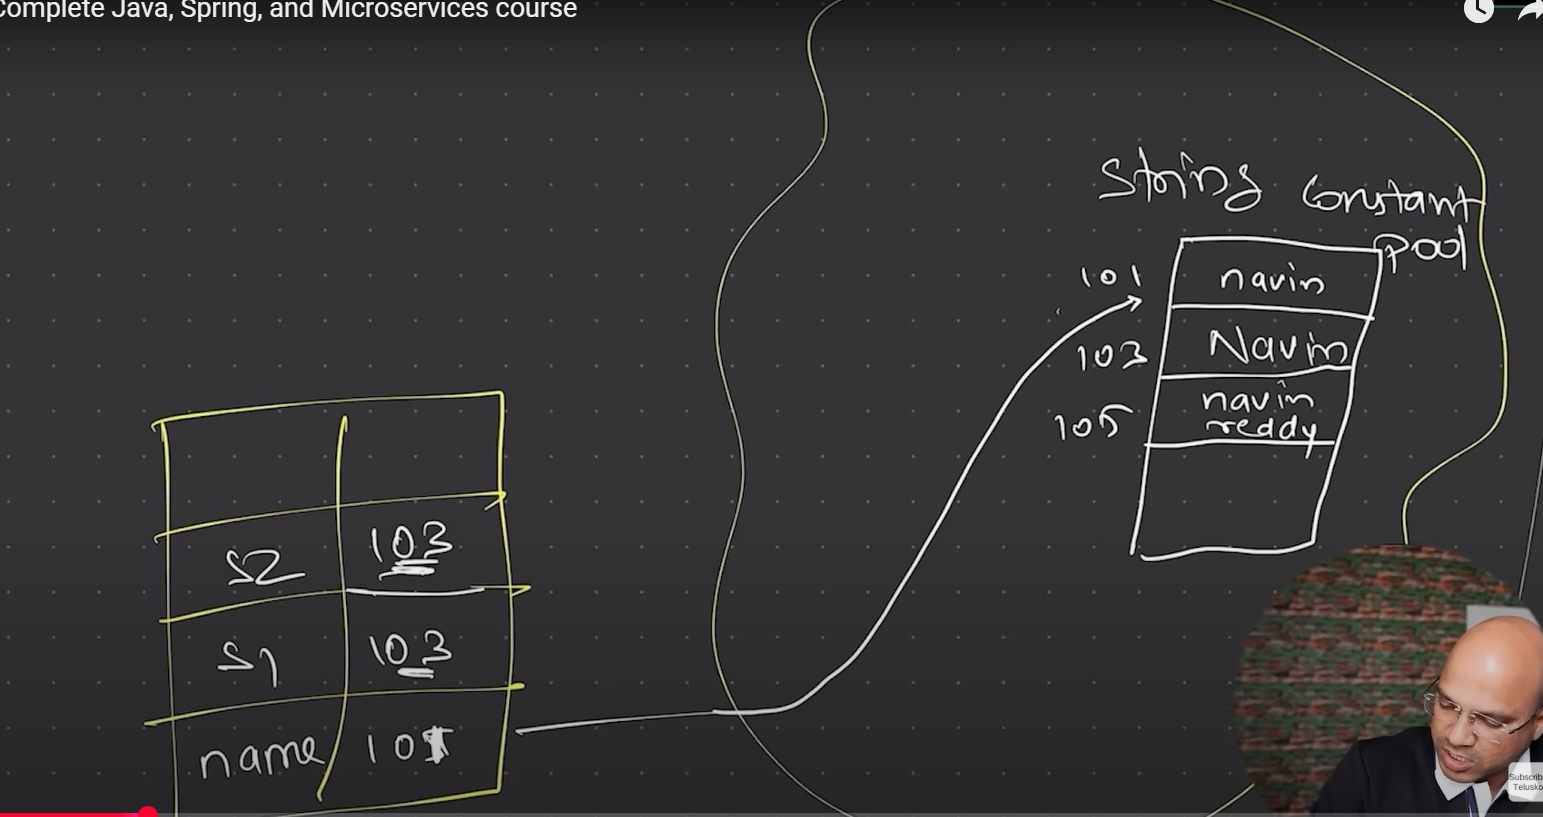 Complete Java, Spring, and Microservices course
String Constant
pool
101 navin
103 Navin
105 navin
reddy
S2 103
S1 103
name
Subscrib
Telusko